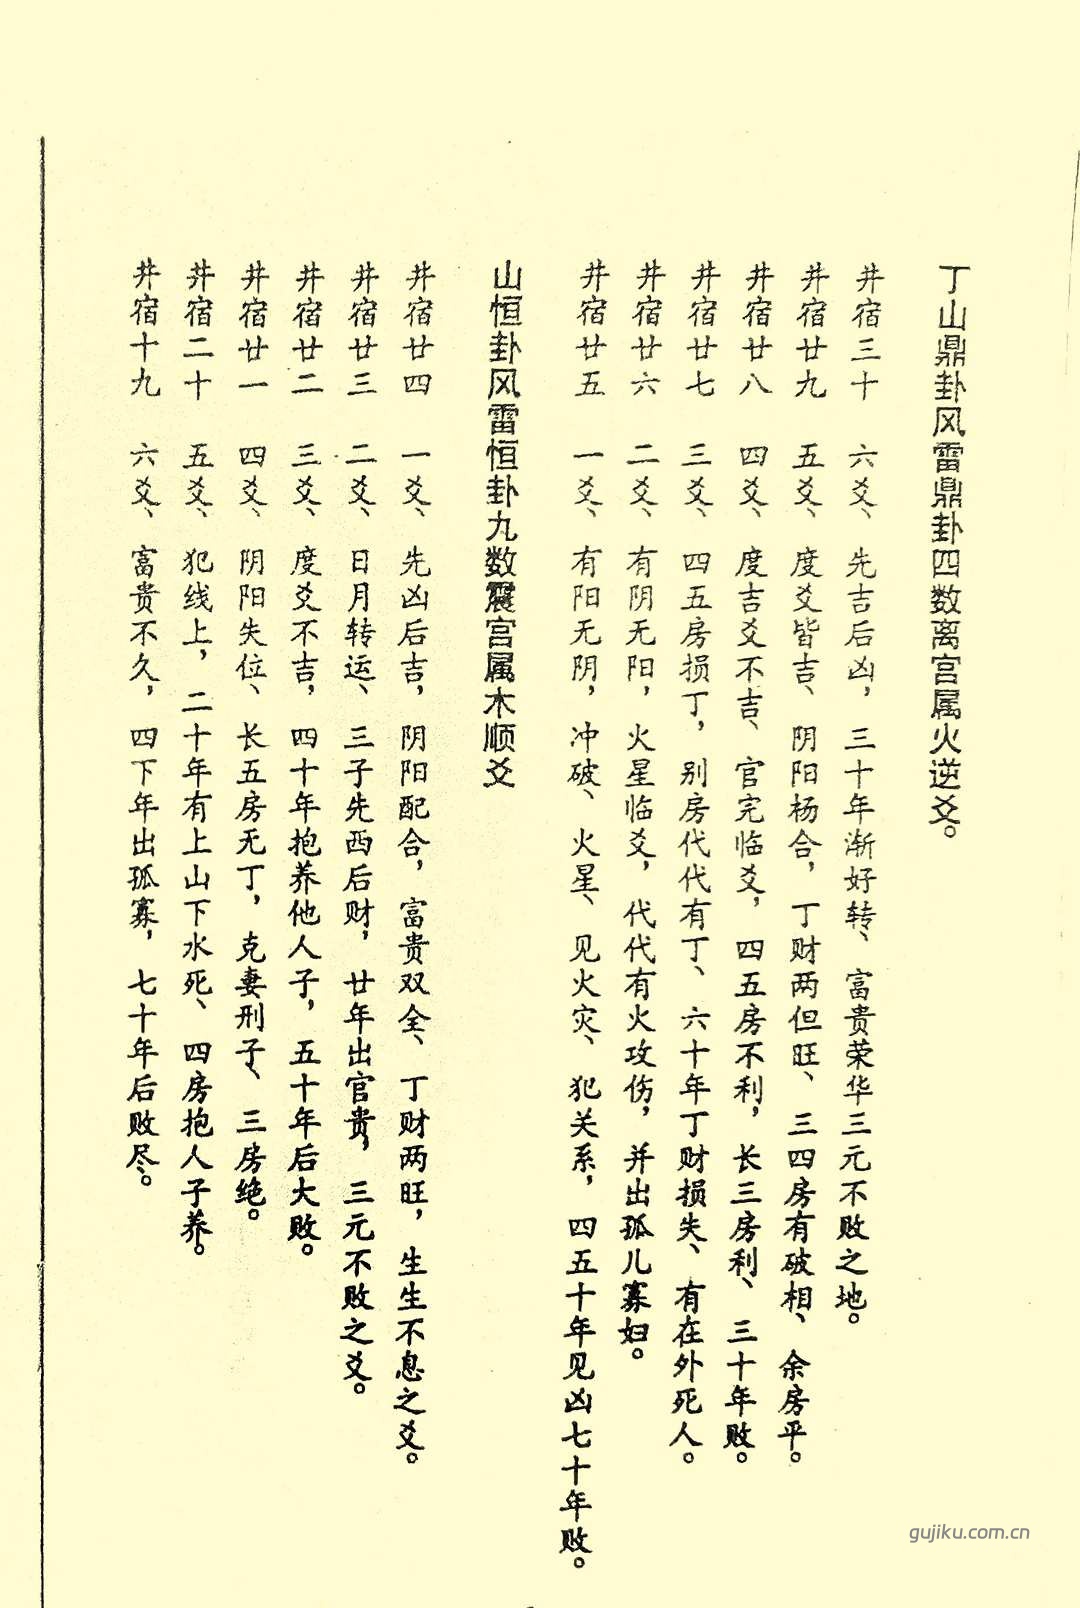 丁山鼎卦风雷鼎卦四数离宫属火逆爻。
井宿三十 六爻、先吉后凶，三十年渐好转、富贵荣华三元不败之地。
井宿廿九 五爻、度爻皆吉、阴阳杨合，丁财两但旺、三四房有破相、余房平。
井宿廿八 四爻、度吉爻不吉、官完临爻，四五房不利，长三房利、三十年败。
井宿廿七 三爻、四五房损丁，别房代代有丁、六十年丁财损失、有在外死人。
井宿廿六 二爻、有阴无阳，火星临爻，代代有火攻伤，并出孤儿寡妇。
井宿廿五 一爻、有阳无阴，冲破、火星、见火灾、犯关系，四五十年见凶七十年败。
山恒卦风雷恒卦九数震宫属木顺爻
井宿廿四 一爻、先凶后吉，阴阳配合，富贵双全、丁财两旺，生生不息之爻。
井宿廿三 二爻、日月转运、三子先西后财，廿年出官贵，三元不败之爻。
井宿廿二 三爻、度爻不吉，四十年抱养他人子，五十年后大败。
井宿廿一 四爻、阴阳失位、长五房无丁，克妻刑子、三房绝。
井宿二十 五爻、犯线上，二十年有上山下水死、四房抱人子养。
井宿十九 六爻、富贵不久，四下年出孤寡，七十年后败尽。
gujiku.com.cn